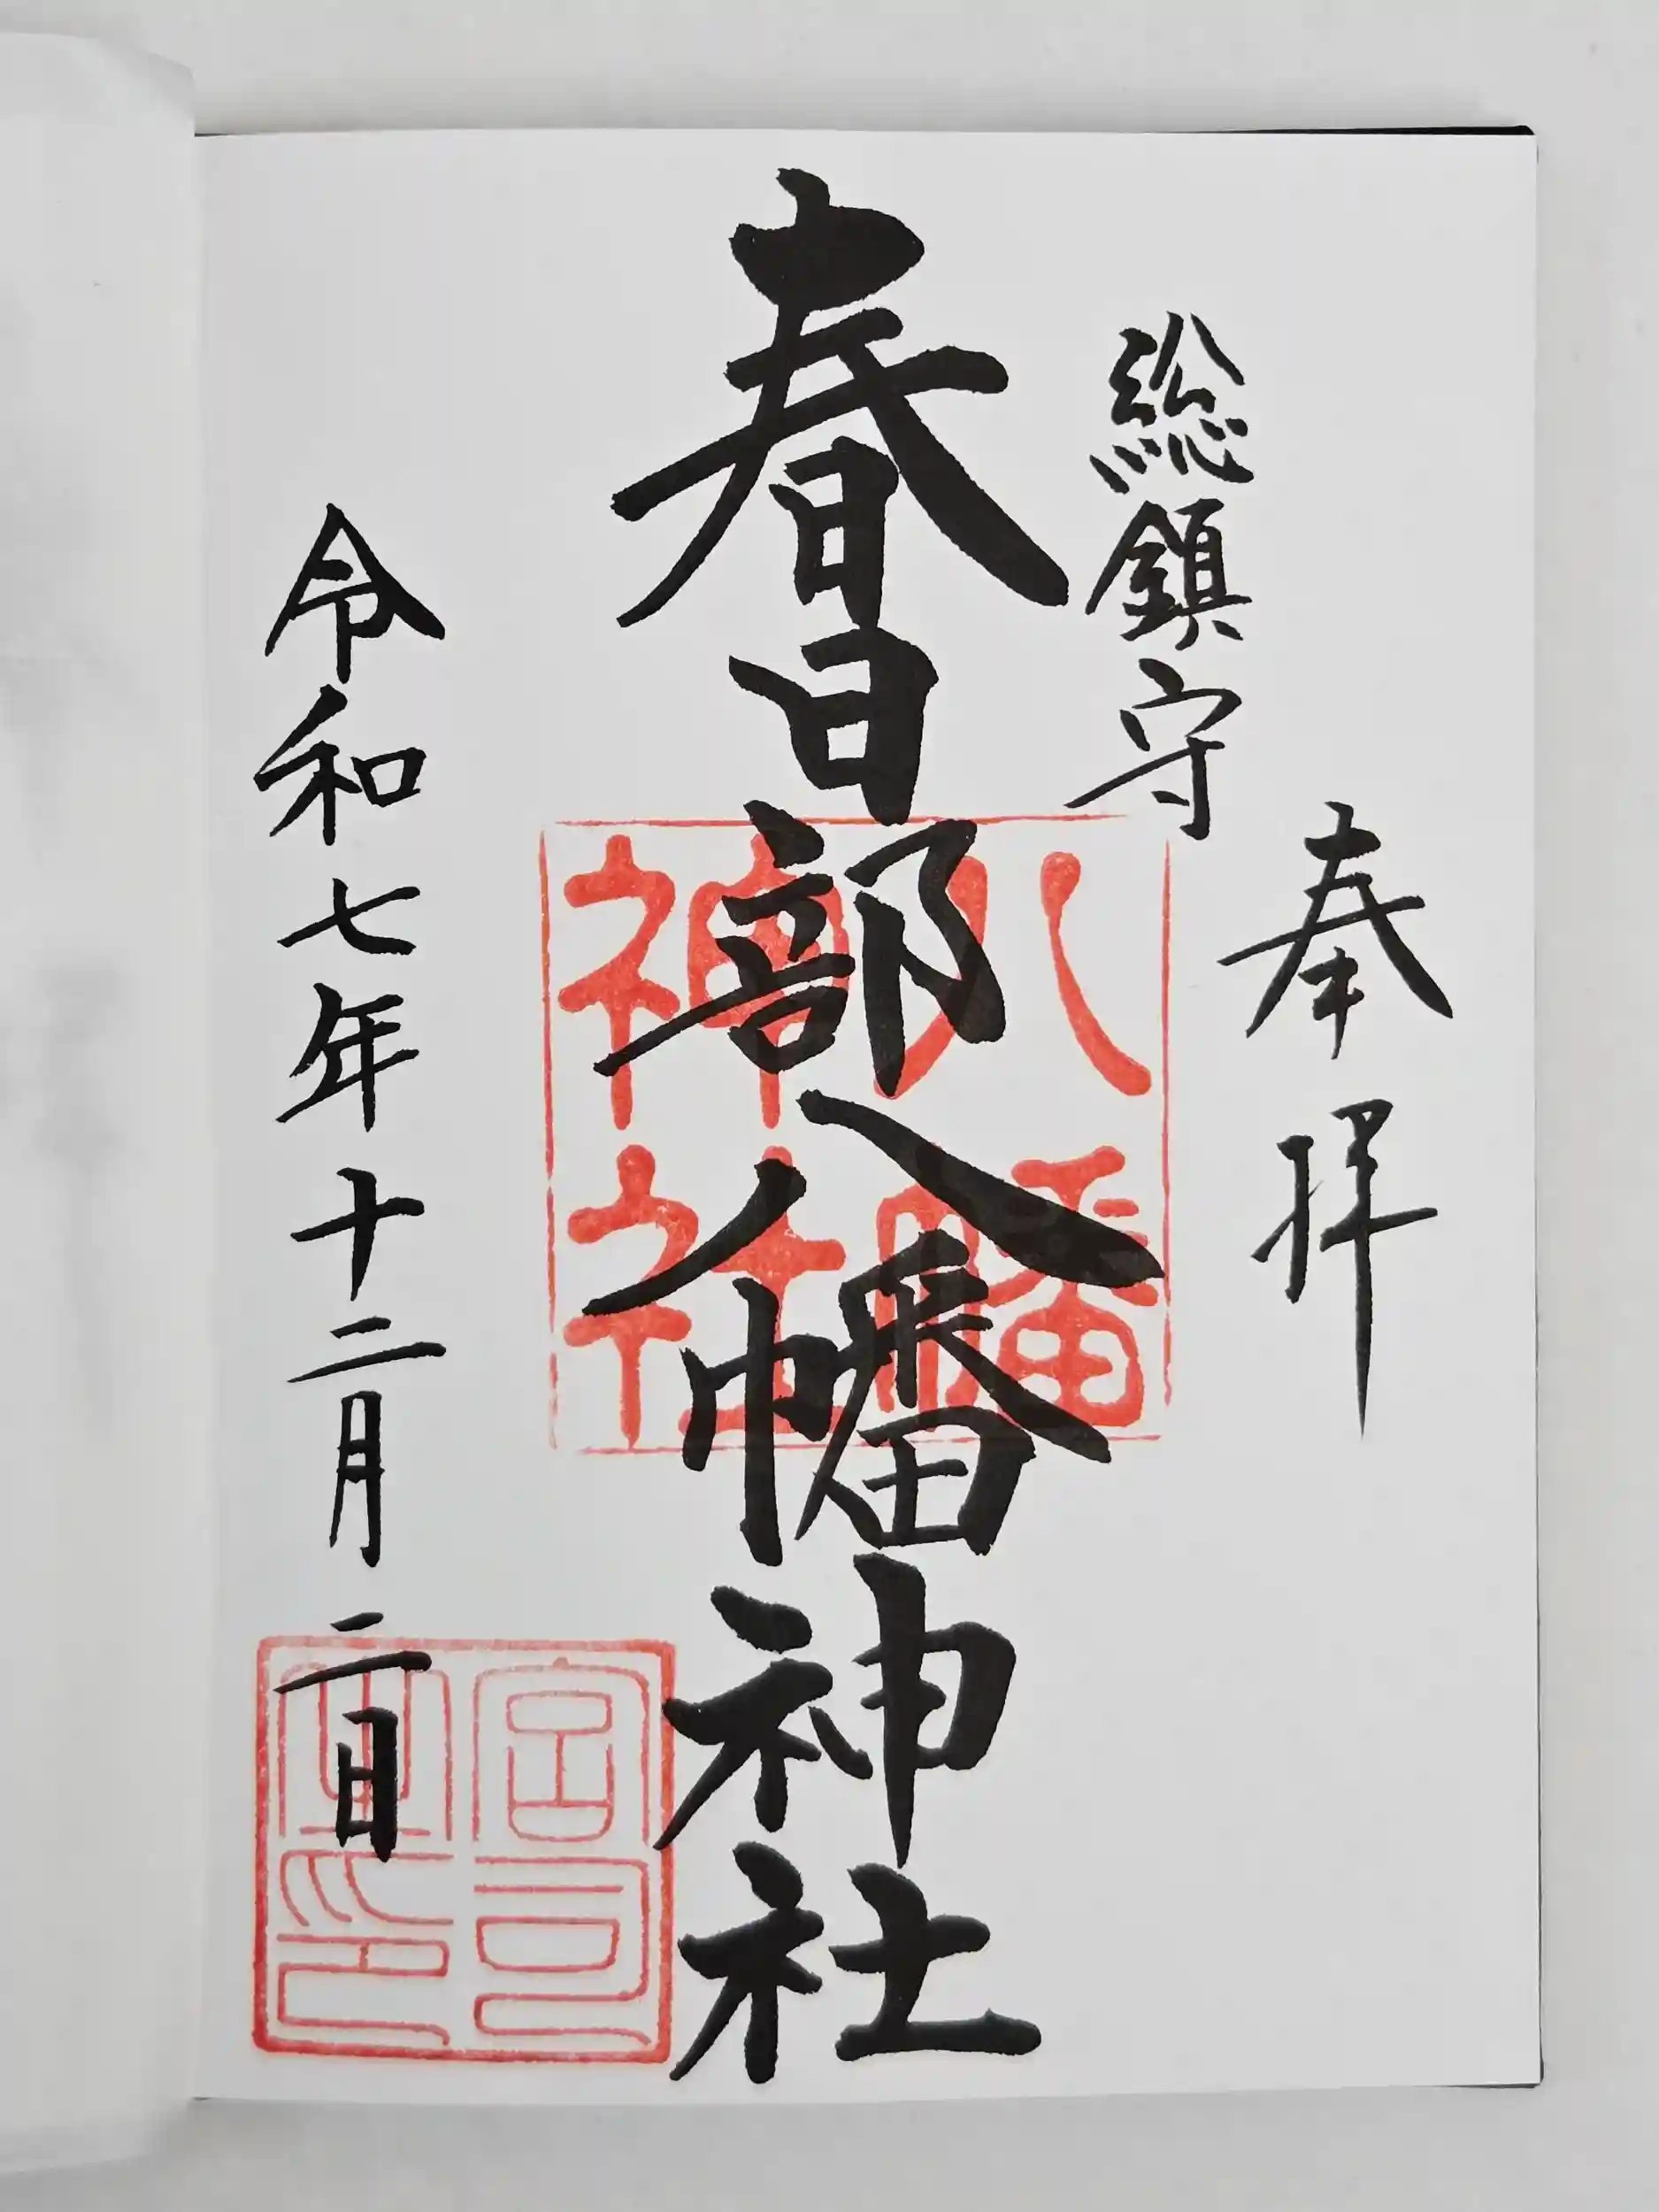 奉拝
総鎮守
春日部八幡神社
令和七年十二月二日
八幡
神社
宮司
之印